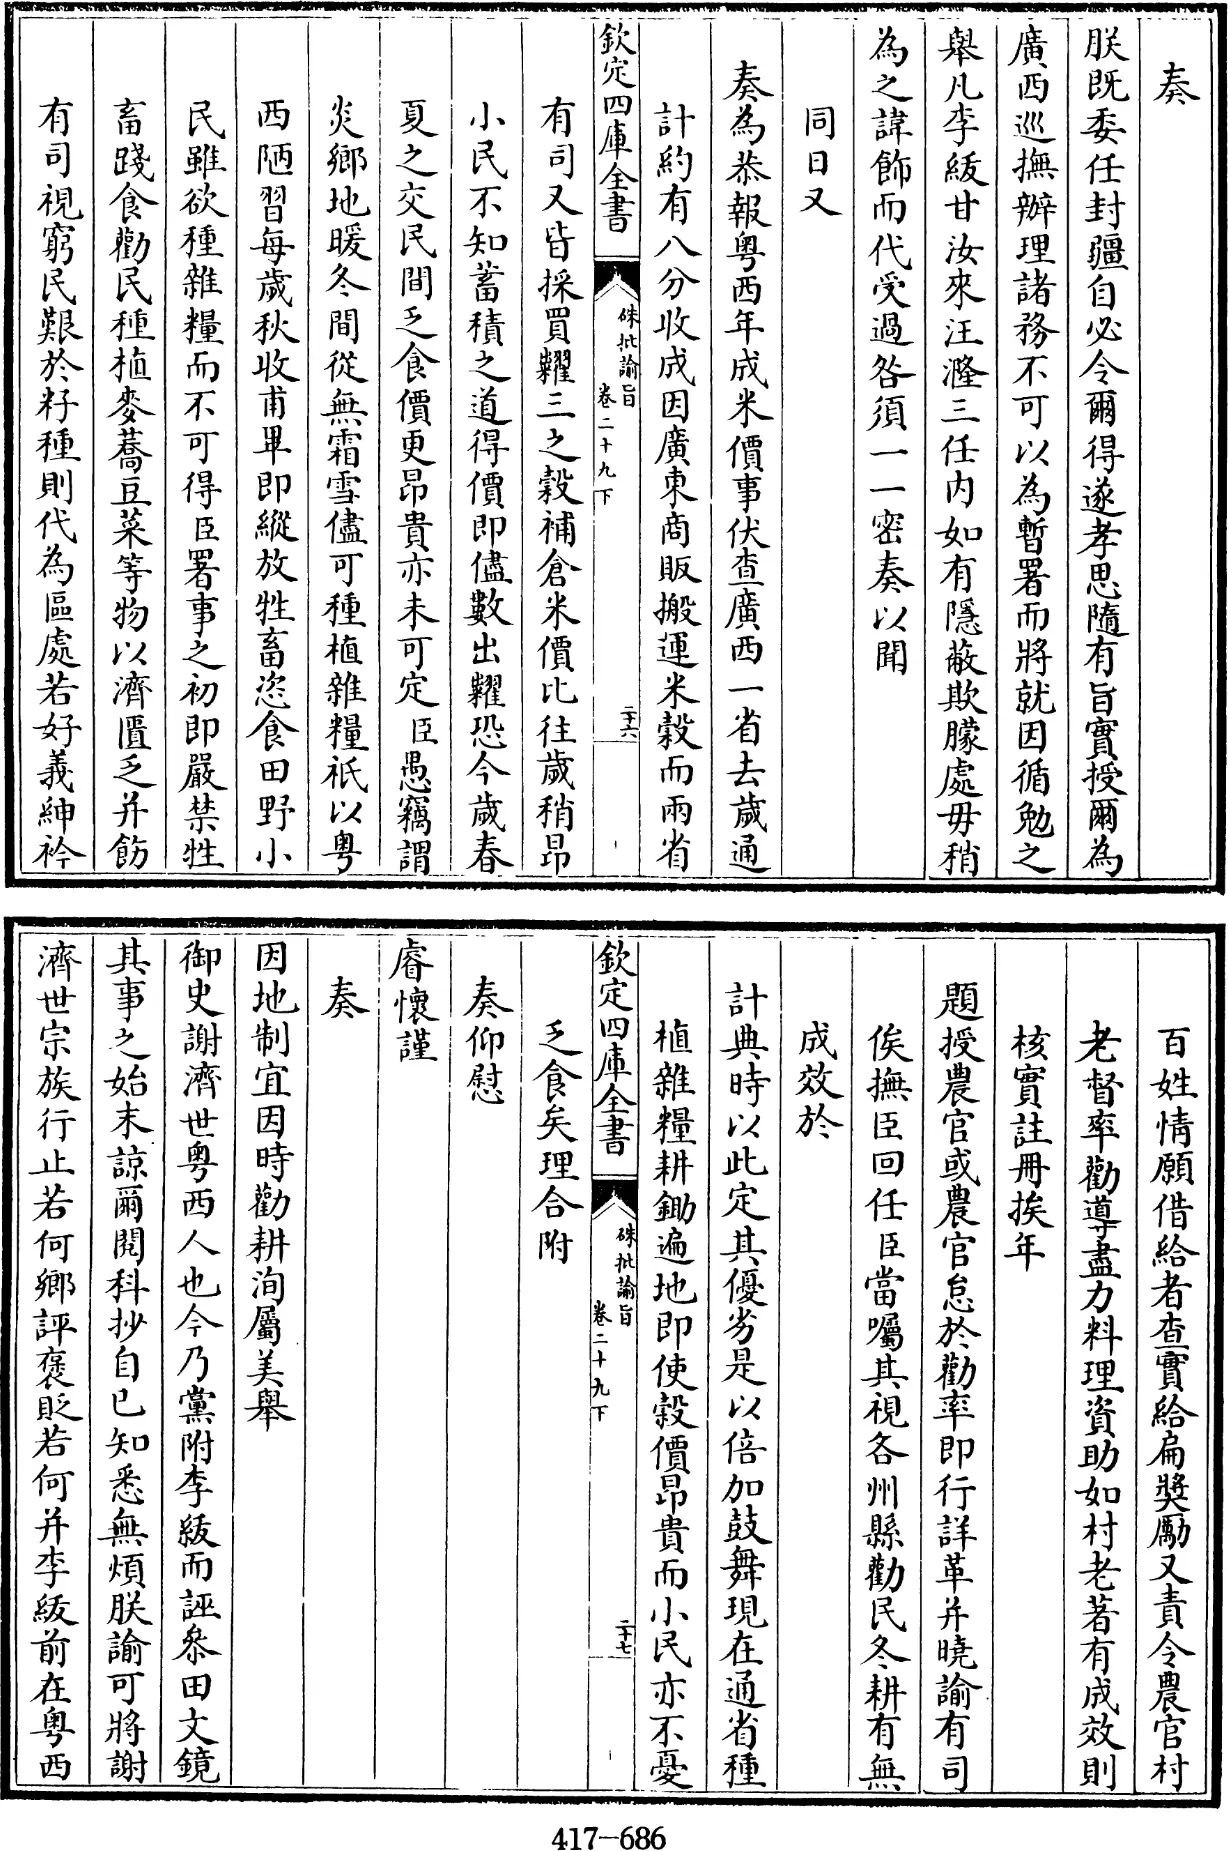 奏
朕既委任封疆自必令爾得遂孝思隨有旨實授爾為
廣西巡撫辦理諸務不可以為暫署而將就因循勉之
舉凡李紱甘汝來汪漋三任内如有隱蔽欺朦處毋稍
為之諱飾而代受過咎須一一密奏以聞
同日又
奏為恭報粤西年成米價事伏查廣西一省去歲通
計約有八分收成因廣東商販搬運米穀而兩省
欽定四庫全書
硃批諭旨
卷二十九下
二十六
有司又皆採買糶三之穀補倉米價比往歲稍昂
小民不知蓄積之道得價即儘數出糶恐今歲春
夏之交民間乏食價更昂貴亦未可定臣愚竊謂
炎鄉地暖冬間從無霜雪儘可種植雜糧祇以粤
西陋習每歲秋收甫畢即縱放牲畜恣食田野小
民雖欲種雜糧而不可得臣署事之初即嚴禁牲
畜踐食勸民種植麥蕎豆菜等物以濟匱乏并飭
有司視窮民艱於籽種則代為區處若好義紳衿
百姓情願借給者查實給扁奬勵又責令農官村
老督率勸導盡力料理資助如村老著有成效則
核實註冊挨年
題授農官或農官怠於勸率即行詳革并曉諭有司
俟撫臣回任臣當囑其視各州縣勸民冬耕有無
成效於
計典時以此定其優劣是以倍加鼓舞現在通省種
植雜糧耕鋤遍地即使穀價昂貴而小民亦不憂
欽定四庫全書
硃批諭旨
卷二十九下
二十七
乏食矣理合附
奏仰慰
睿懷謹
奏
因地制宜因時勸耕洵屬美舉
御史謝濟世粤西人也今乃黨附李紱而誣叅田文鏡
其事之始末諒爾閱科抄自已知悉無煩朕諭可將謝
濟世宗族行止若何鄉評褒貶若何并李紱前在粤西
417-686